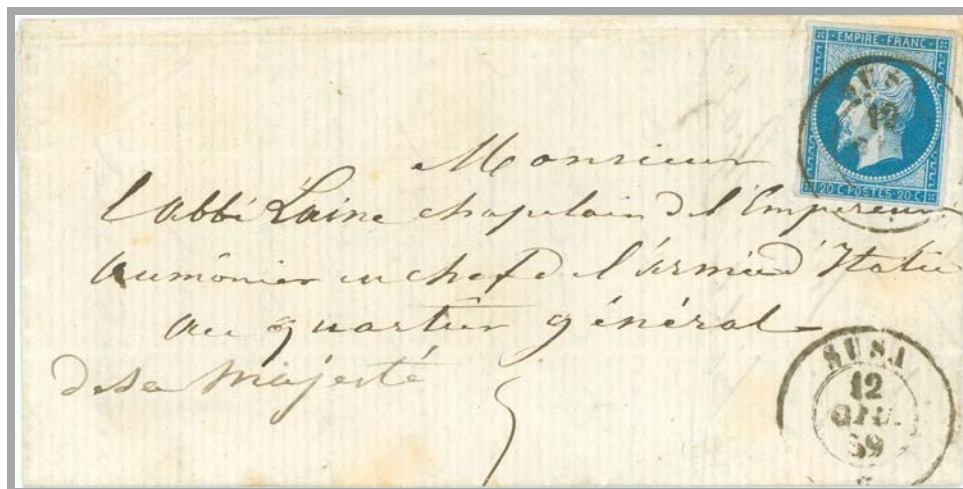 EMPIRE · FRANC ·
SUS
12
20 C · POSTES · 20 C
Monsieur
l'abbé Laine chapelain de l'Empereur
aumônier en chef de l'armée d'Italie
au quartier général
de sa Majesté
SUSA
12
GIU.
59